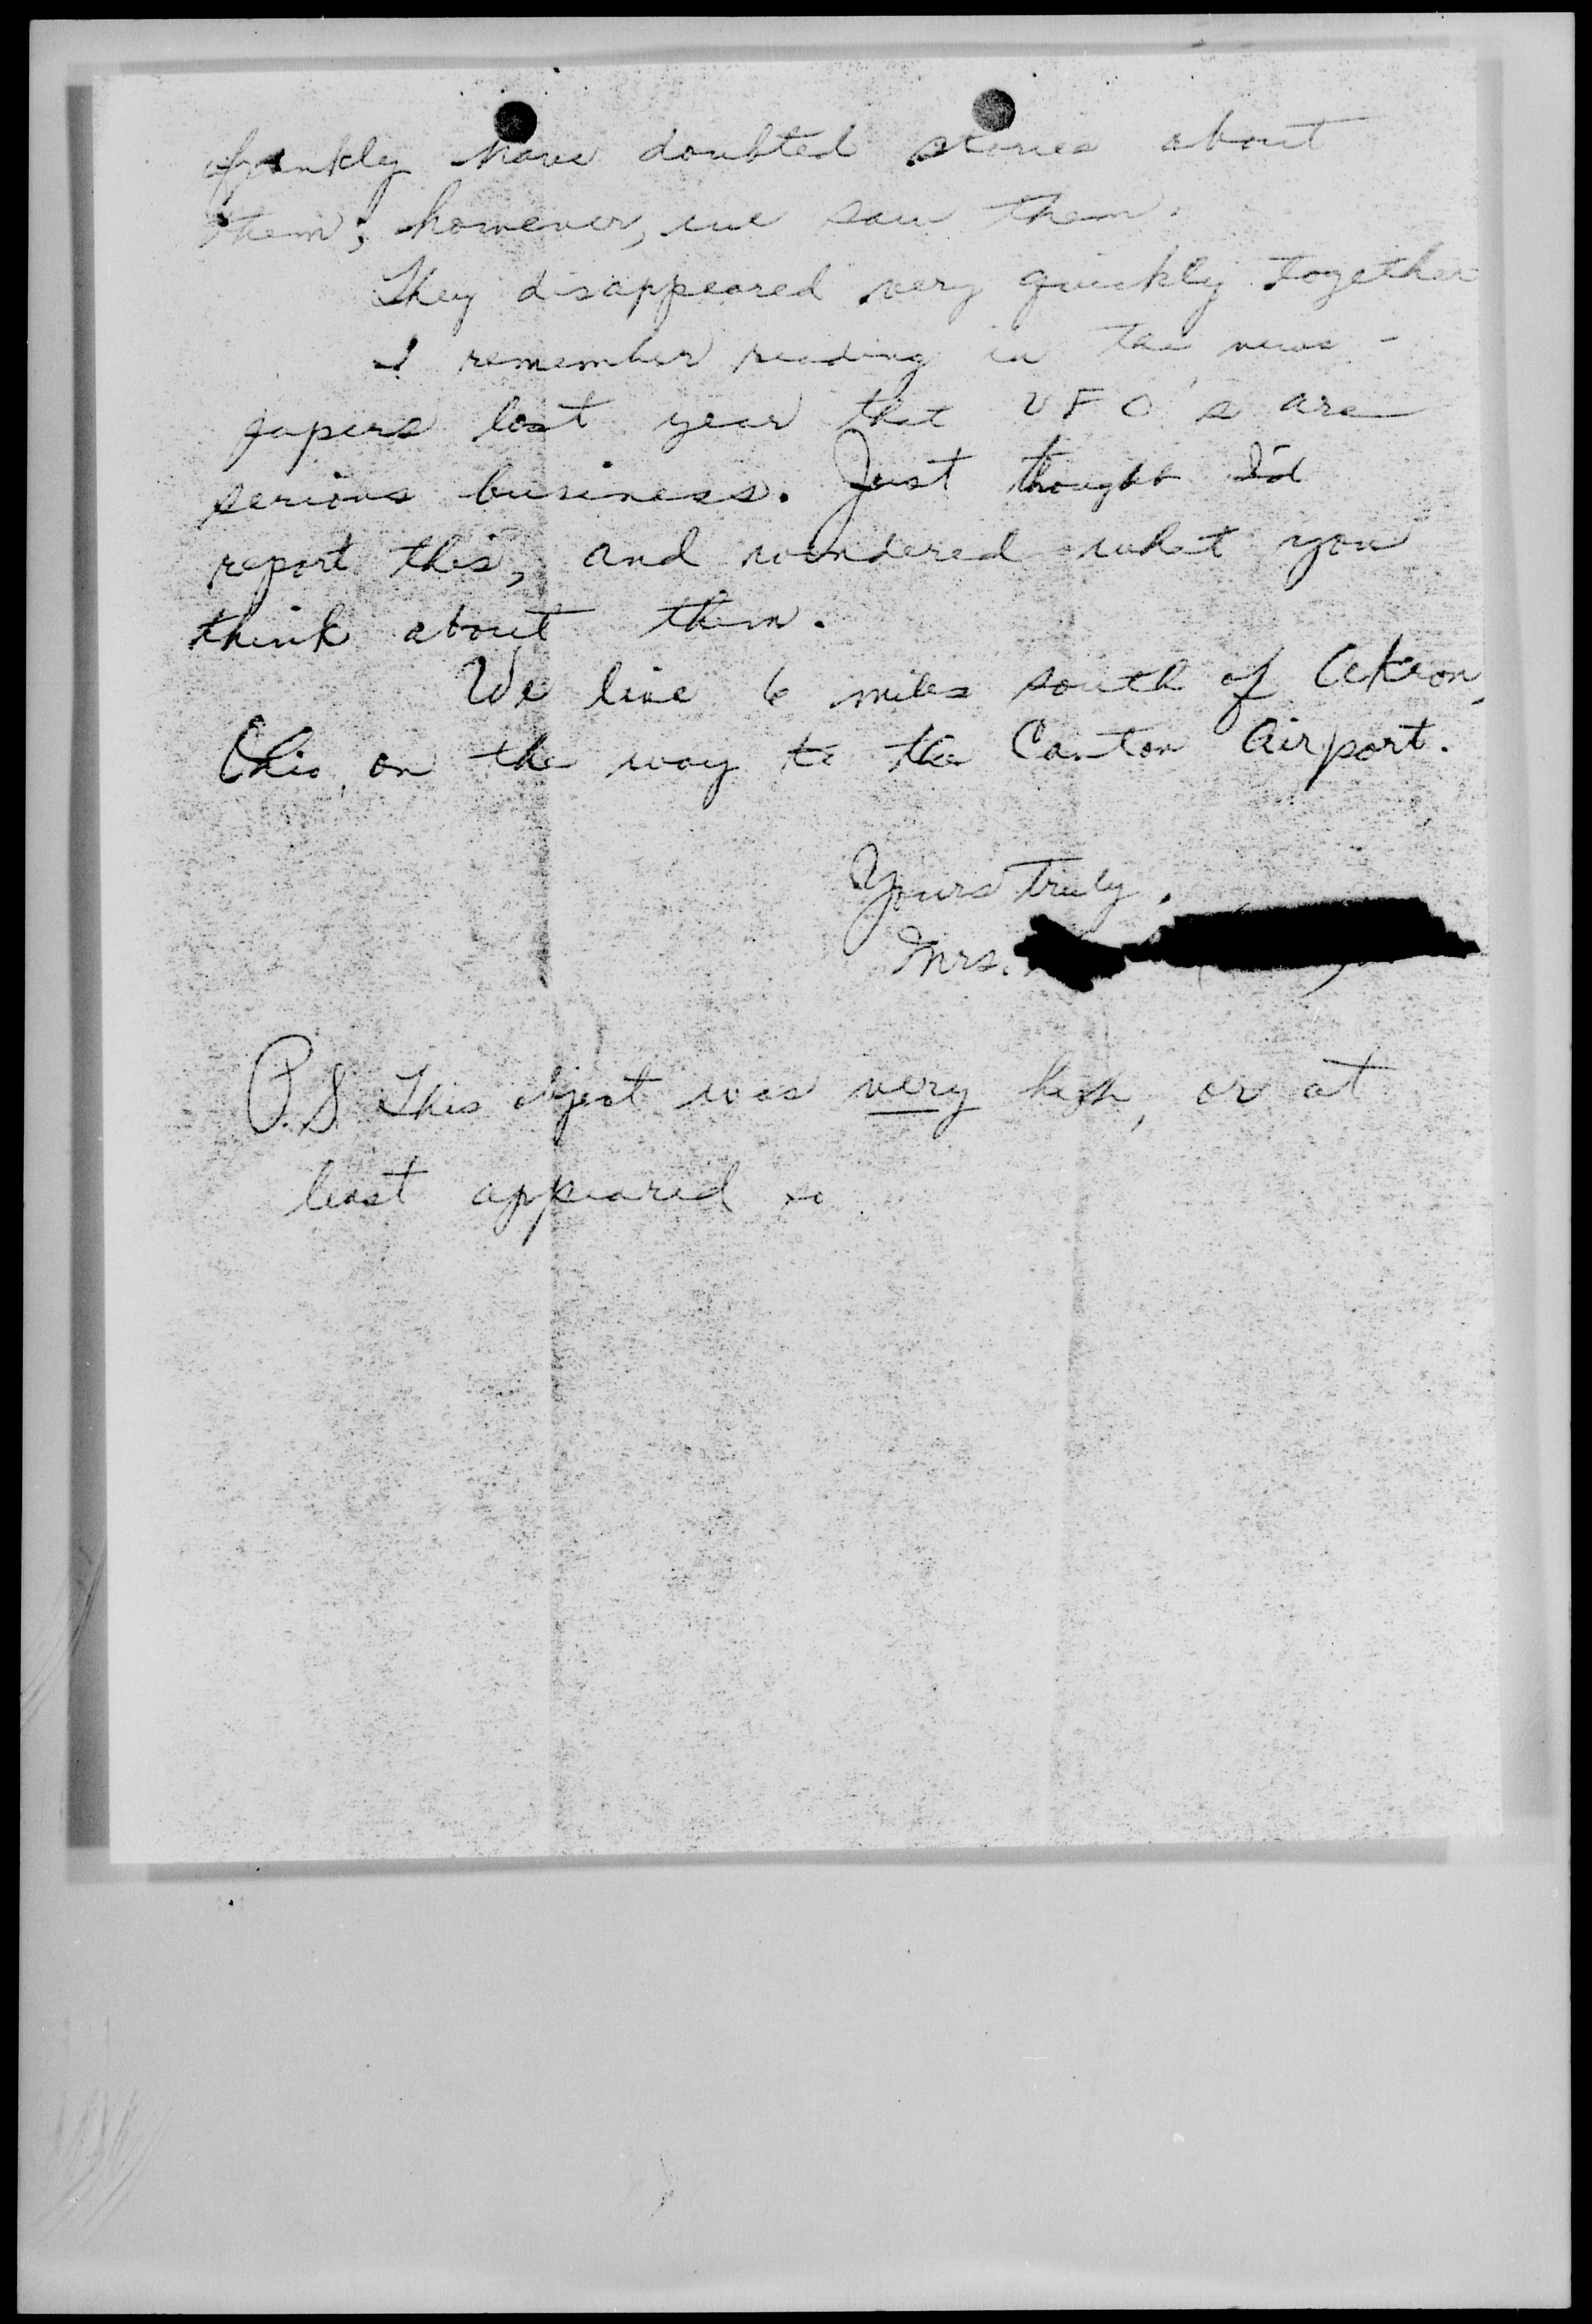 frankly have doubted stories about
them; however, we saw them.
They disappeared very quickly together
I remember reading in the news-
papers last year that UFO's are
serious business. Just thought I'd
report this, and wondered what you
think about them.
We live 6 miles south of Akron,
Ohio, on the way to the Canton Airport.
Yours truly,
Mrs.
P.S. This object was very high, or at
least appeared so.